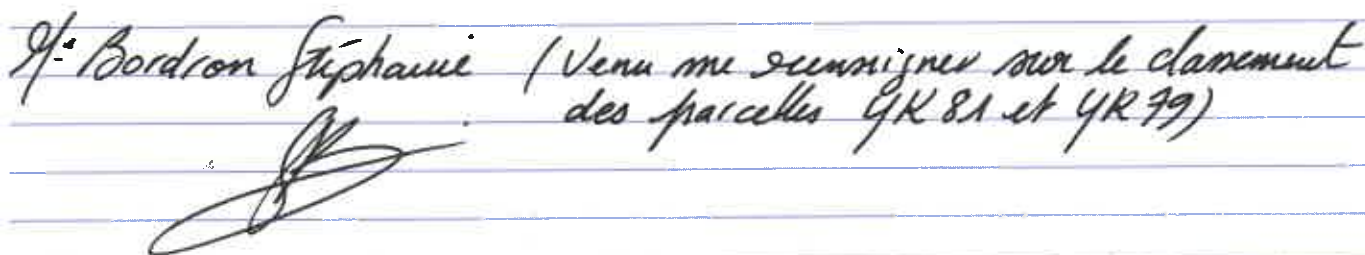 Me Bordron Stéphanie (Venu me renseigner sur le classement
des parcelles YK 81 et YK 79)